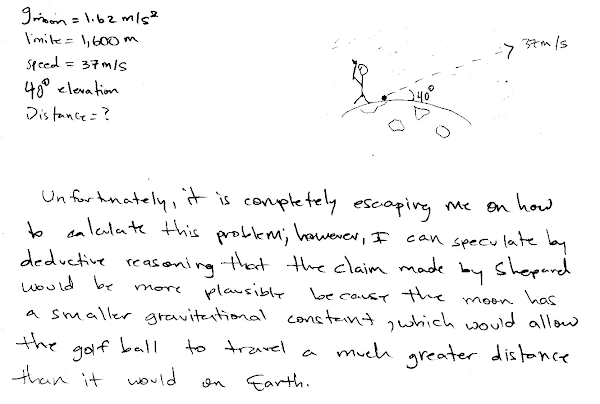 gmoon = 1.62 m/s²
1 mile = 1,600 m
speed = 37m/s
40° elevation
Distance = ?
37m/s
40°
Unfortunately, it is completely escaping me on how
to calculate this problem; however, I can speculate by
deductive reasoning that the claim made by Shepard
would be more plausible because the moon has
a smaller gravitational constant, which would allow
the golf ball to travel a much greater distance
than it would on Earth.